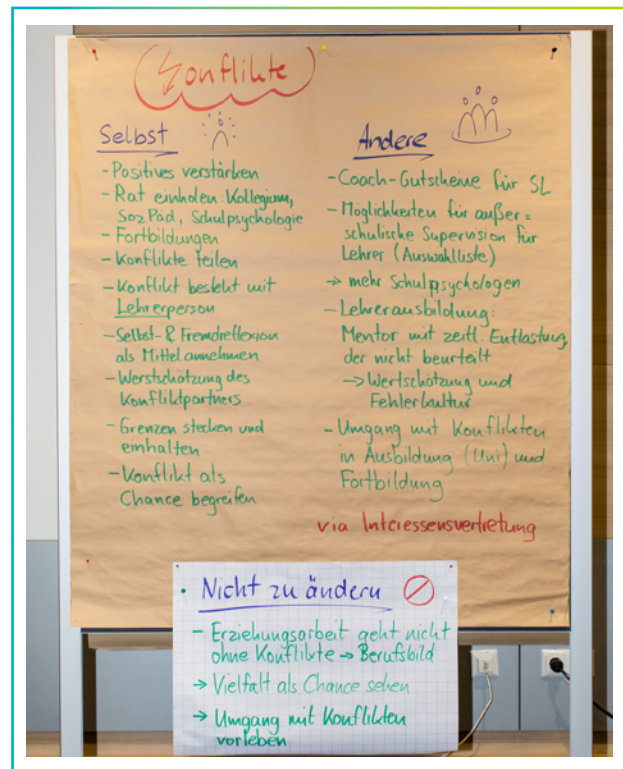 Konflikte
Selbst
- Positives verstärken
- Rat einholen: Kollegium,
SozPäd, Schulpsychologie
- Fortbildungen
- Konflikte teilen
- Konflikt besteht mit
Lehrerperson
- Selbst- & Fremdreflexion
als Mittel annehmen
- Werstschätzung des
Konfliktpartners
- Grenzen stecken und
einhalten
- Konflikt als
Chance begreifen
Andere
- Coach-Gutscheine für SL
- Möglichkeiten für außer=
schulische Supervision für
Lehrer (Auswahlliste)
→ mehr Schulpsychologen
- Lehrerausbildung:
Mentor mit zeitl. Entlastung,
der nicht beurteilt
→ Wertschätzung und
Fehlerkultur
- Umgang mit Konflikten
in Ausbildung (Uni) und
Fortbildung
via Interessensvertretung
Nicht zu ändern
- Erziehungsarbeit geht nicht
ohne Konflikte → Berufsbild
→ Vielfalt als Chance sehen
→ Umgang mit Konflikten
vorleben